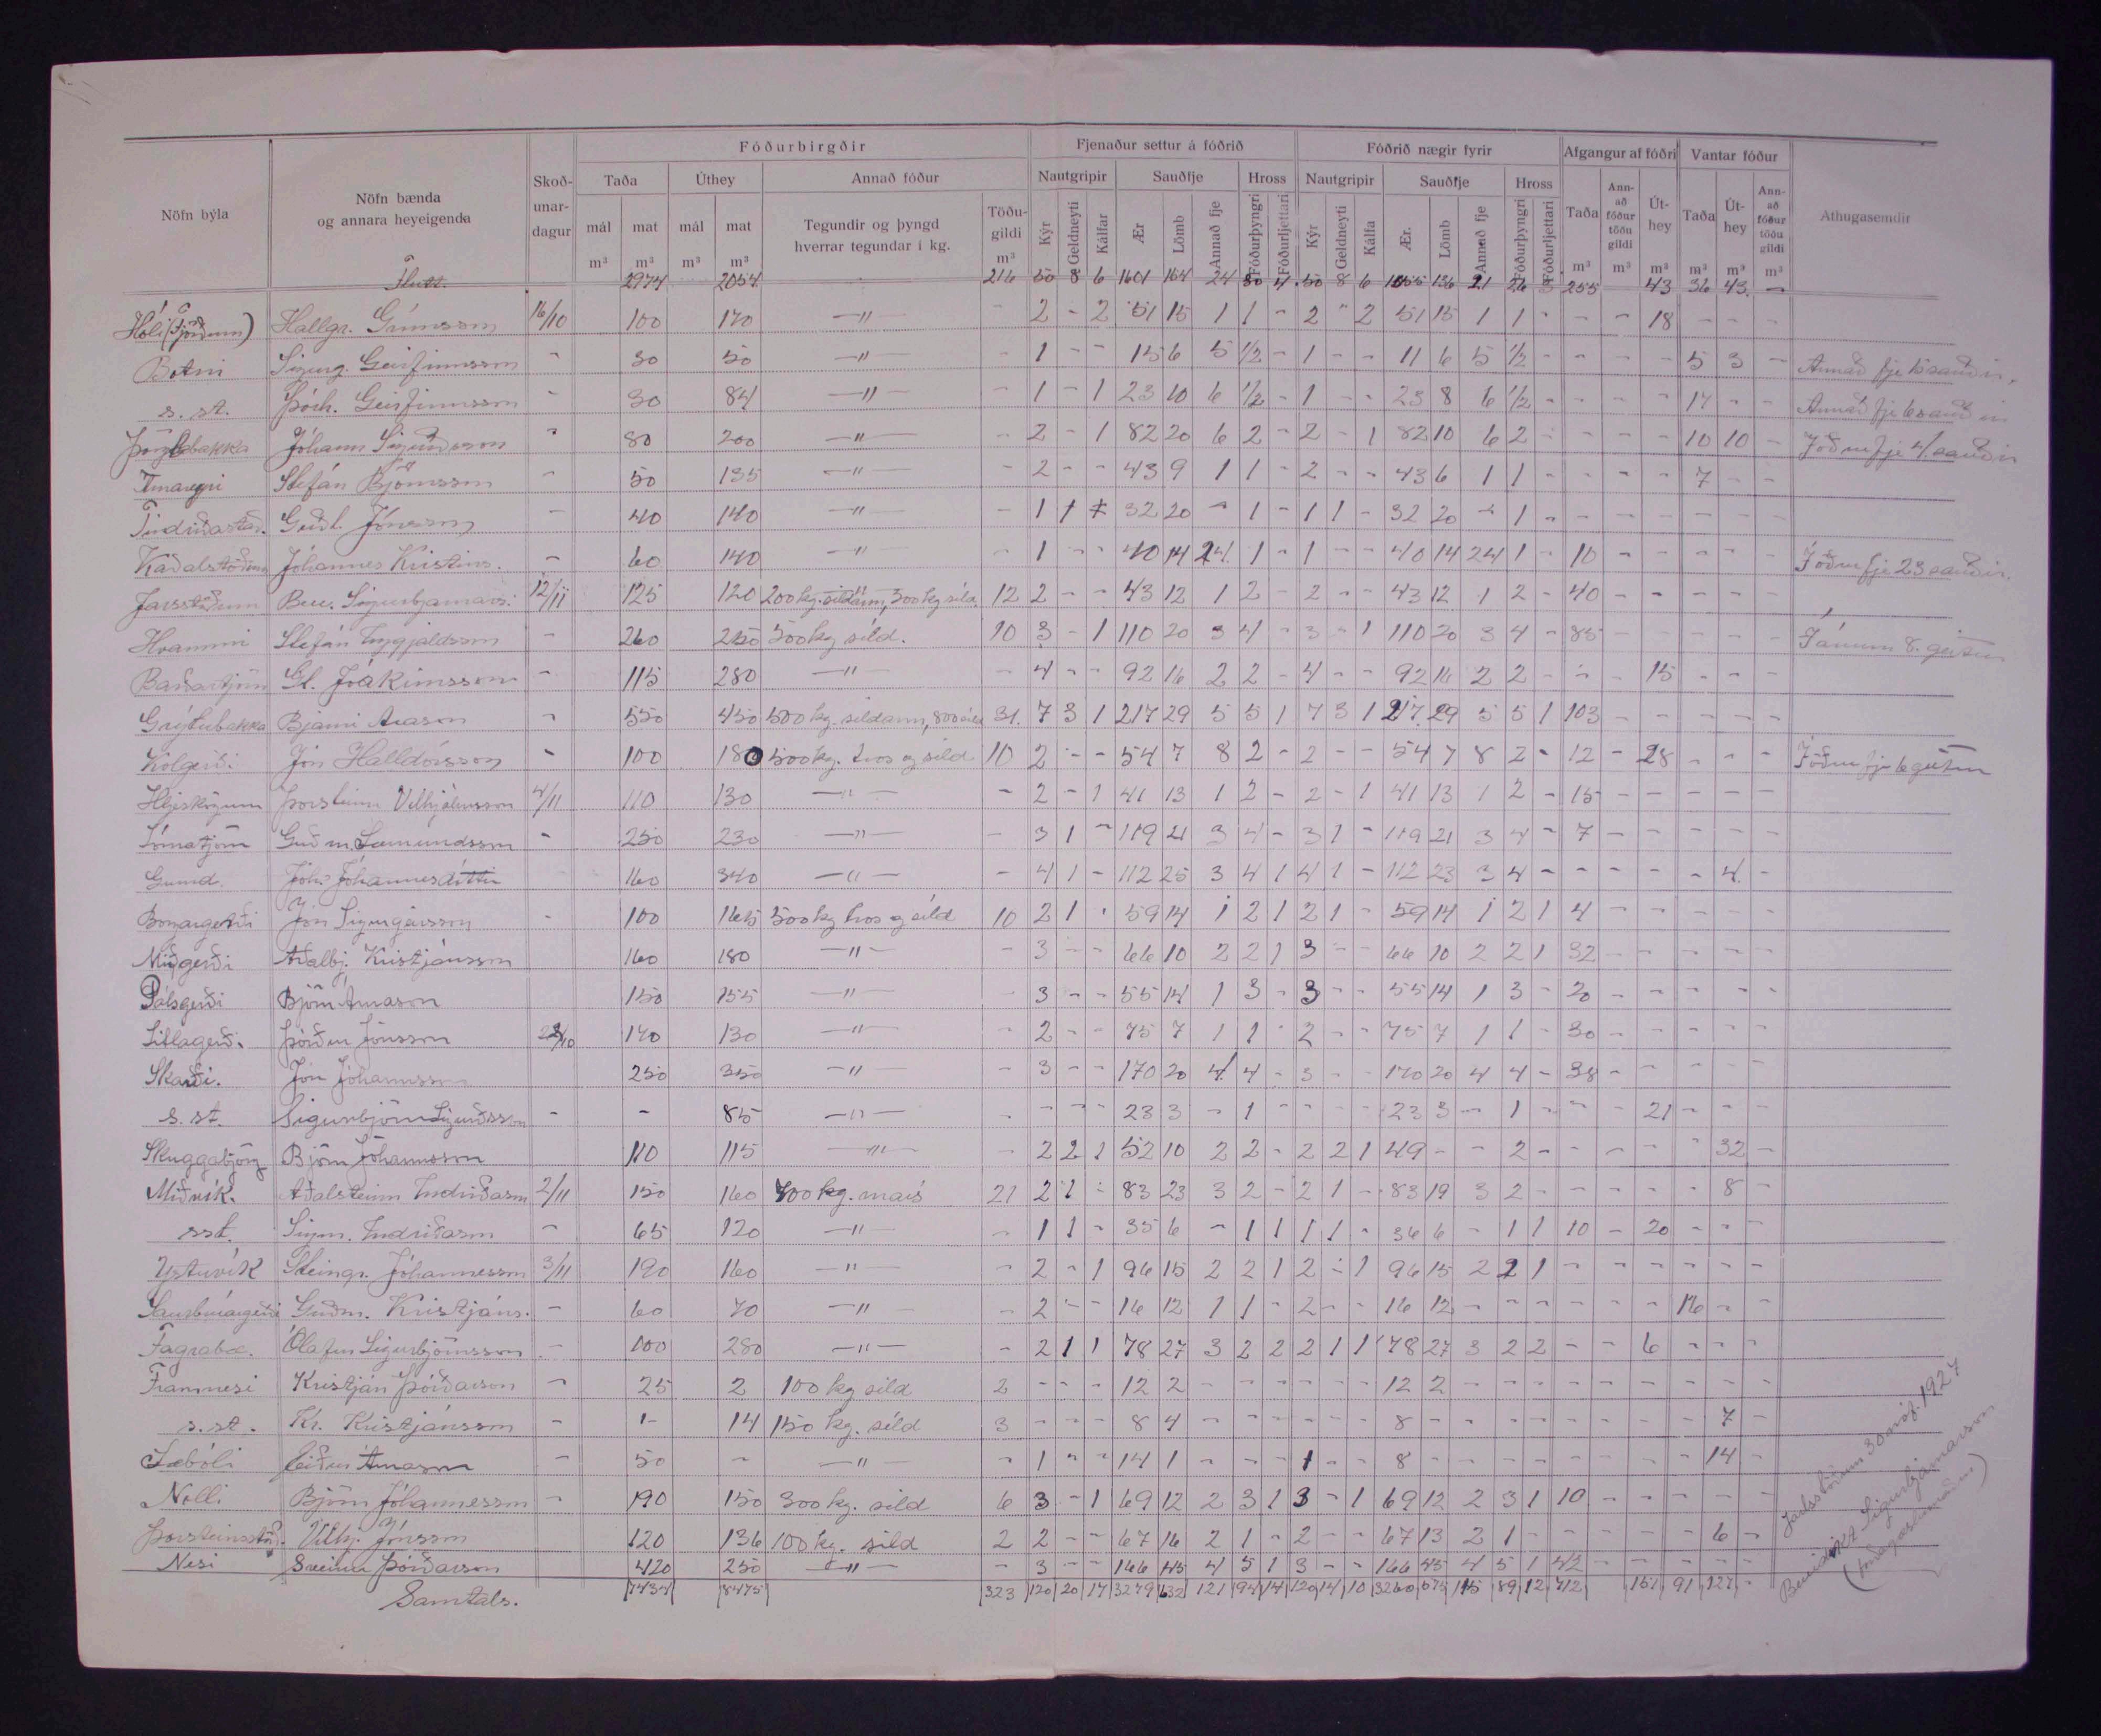 Fóðurbirgðir Fjenaður settur á fóðrið Fóðrið nægir fyrir Afgangur af fóðri Vantar fóður
Nöfn býla Nöfn bænda og annara heyeigenda Skoðunardagur Taða Úthey Annað fóður Nautgripir Sauðfje Hross Nautgripir Sauðfje Hross Taða Annað fóður töðu gildi Úthey Taða Úthey Annað fóður töðu gildi Athugasemdir
mál m³ mat m³ mál m³ mat m³ Tegundir og þyngd hverrar tegundar í kg. Töðugildi m³ Kýr Geldneyti Kálfar Ær Lömb Annað fje Fóðurþyngri Fóðurljettari Kýr Geldneyti Kálfa Ær. Lömb Annað fje Fóðurþyngri Fóðurljettari m³ m³ m³ m³ m³ m³
Flutt. 2974 2054 216 50 8 6 1601 164 24 30 4 50 8 6 136 21 26 3 255 43 36 43 -
Hóli (Fjörðum) Hallgr. Grímsson 16/10 100 170 -"- - 2 - 2 51 15 1 1 - 2 " 2 51 15 1 1 - - - 18 - - -
Botni Sigurg. Geirfinnsson - 30 50 -"- - 1 - - 15 6 5 1/2 - 1 - - 11 6 5 1/2 - - - - 5 3 - Annað fje 5 sauðir.
s. st. Þórh. Geirfinnsson - 30 84 -"- - 1 - 1 23 10 6 1/2 - 1 - - 23 8 6 1/2 - - - - 17 - - Annað fje 6 sauðir
Þorgilsbakka Jóhann Sigurðsson " 80 200 -"- - 2 - 1 82 20 6 2 - 2 - 1 82 10 6 2 - - - - 10 10 - Í öðru fje 4 sauðir
Stefán Björnsson - 50 135 -"- - 2 - - 43 9 1 1 - 2 - - 43 6 1 1 - - - - 7 - -
Indriðastöð. Guðl. Jónsson - 40 140 -"- - 1 1 32 20 - 1 - 1 1 - 32 20 - 1 - - - - - - -
Kaðalstöðum Jóhannes Kristins. - 60 140 -"- - 1 - - 40 14 24 1 - 1 - - 40 14 24 1 - 10 - - - - - Í öðru fje 23 sauðir.
Jarlsstöðum Ben. Sigurbjarnars. 12/11 125 120 200 kg. síldarm, 300 kg síld. 12 2 - - 43 12 1 2 - 2 - - 43 12 1 2 - 40 - - - - -
Hvammi Stefán Ingjaldsson - 260 250 500 kg síld. 10 3 - 1 110 20 3 4 - 3 - 1 110 20 3 4 - 85 - - - - - Í ánum 8. geitur
Gl. Jóakimsson - 115 280 -"- - 4 - - 92 16 2 2 - 4 - - 92 16 2 2 - - - 15 - - -
Grýtubakka Bjarni Arason - 550 450 500 kg. síldarm, 800 síld 31. 7 3 1 217 29 5 5 1 7 3 1 217 29 5 5 1 103 - - - - -
Kolgerði Jón Halldórsson - 100 180 500 kg. tros og síld 10 2 - - 54 7 8 2 - 2 - - 54 7 8 2 - 12 - 28 - - - Í öðru fje 6 geitur
Hljeskógum Þorsteinn Vilhjálmsson 4/11 110 130 -"- - 2 - 1 41 13 1 2 - 2 - 1 41 13 1 2 - 15 - - - - -
Lómatjörn Guðm. Sæmundsson - 250 230 -"- - 3 1 - 119 21 3 4 - 3 1 - 119 21 3 4 - 7 - - - - -
Grund Jóh. Jóhannesdóttir 160 340 -"- - 4 1 - 112 25 3 4 1 4 1 - 112 23 3 4 - - - - - 4 -
Borgargerði Jón Sigurgeirsson - 100 165 500 kg tros og síld 10 2 1 - 59 14 1 2 1 2 1 - 59 14 1 2 1 4 - - - - -
Miðgerði Aðalbj. Kristjánsson 160 180 -"- - 3 - - 66 10 2 2 1 3 - - 66 10 2 2 1 32 - - - - -
Pálsgerði Björn Árnason 150 155 -"- - 3 - - 55 14 1 3 - 3 - - 55 14 1 3 - 20 - - - - -
Litlagerði. Þórður Jónsson 140 130 -"- - 2 - - 75 7 1 1 - 2 - - 75 7 1 1 - 30 - - - - -
Skarði. Jón Jóhannsson 250 350 -"- - 3 - - 170 20 4 4 - 3 - - 170 20 4 4 - 38 - - - - -
s. st. Sigurbjörn Sigurðsson - - 85 -"- - - - - 23 3 - 1 - - - - 23 3 - 1 - - - 21 - - -
Skuggabjörg Björn Jóhannsson 110 115 -"- - 2 2 1 52 10 2 2 - 2 2 1 49 - - 2 - - - - - 32 -
Miðvík. Aðalsteinn Indriðason 2/11 150 160 700 kg. mais 21 2 1 - 83 23 3 2 - 2 1 - 83 19 3 2 - - - - - 8 -
sst. Sigm. Indriðason - 65 120 -"- - 1 1 - 35 6 - 1 1 1 1 - 36 6 - 1 1 10 - 20 - - -
Ystuvík Steingr. Jóhannesson 3/11 190 160 -"- - 2 - 1 96 15 2 2 1 2 - 1 96 15 2 2 1 - - - - - -
Saurbrúargerði Guðm. Kristjáns. - 60 70 -"- - 2 - - 16 12 1 1 - 2 - - 16 12 - - - - - - 16 - -
Fagrabæ. Ólafur Sigurbjörnsson - 100 280 -"- - 2 1 1 78 27 3 2 2 2 1 1 78 27 3 2 2 - - 6 - - -
Framnesi Kristján Þórðarson - 25 2 100 kg síld 2 - - - 12 2 - - - - - - 12 2 - - - - - - - - -
s. st. Kr. Kristjánsson - 1- 14 150 kg. síld 3 - - - 8 4 - - - - - - 8 - - - - - - - - 7 -
Sæbóli Eiður Árnason - 50 - -"- - 1 - - 14 1 - - - 1 - - 8 - - - - - - - - 14 -
Nolli Björn Jóhannesson - 190 150 300 kg. síld 6 3 - 1 69 12 2 3 1 3 - 1 69 12 2 3 1 10 - - - - -
Þorsteinsstöð. Vilhj. Jónsson 120 136 100 kg. síld 2 2 - - 67 16 2 1 - 2 - - 67 13 2 1 - - - - - 6 -
Nesi Sveinn Þórðarson 420 250 -"- - 3 - - 166 45 4 5 1 3 - - 166 45 4 5 1 42 - - - - -
Samtals. 7434 8475 323 120 20 17 3279 632 121 94 14 120 14 10 3260 575 115 89 12 712 151 91 127 -
Jarlsstöðum 30. nóv. 1927
Benedikt Sigurbjarnarson